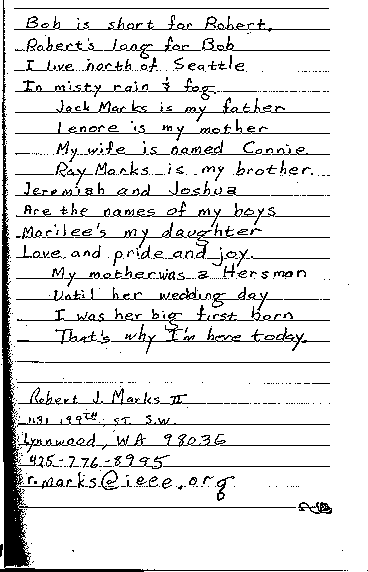 Bob is short for Robert.
Robert's long for Bob
I live north of Seattle
In misty rain & fog.
Jack Marks is my father
Lenore is my mother
My wife is named Connie
Ray Marks is my brother.
Jeremiah and Joshua
Are the names of my boys
Marilee's my daughter
Love and pride and joy.
My mother was a Hersman
Until her wedding day
I was her big first born
That's why I'm here today.
Robert J. Marks II
199TH ST. S.W.
Lynnwood, WA 98036
425-776-8995
r.marks@ieee.org